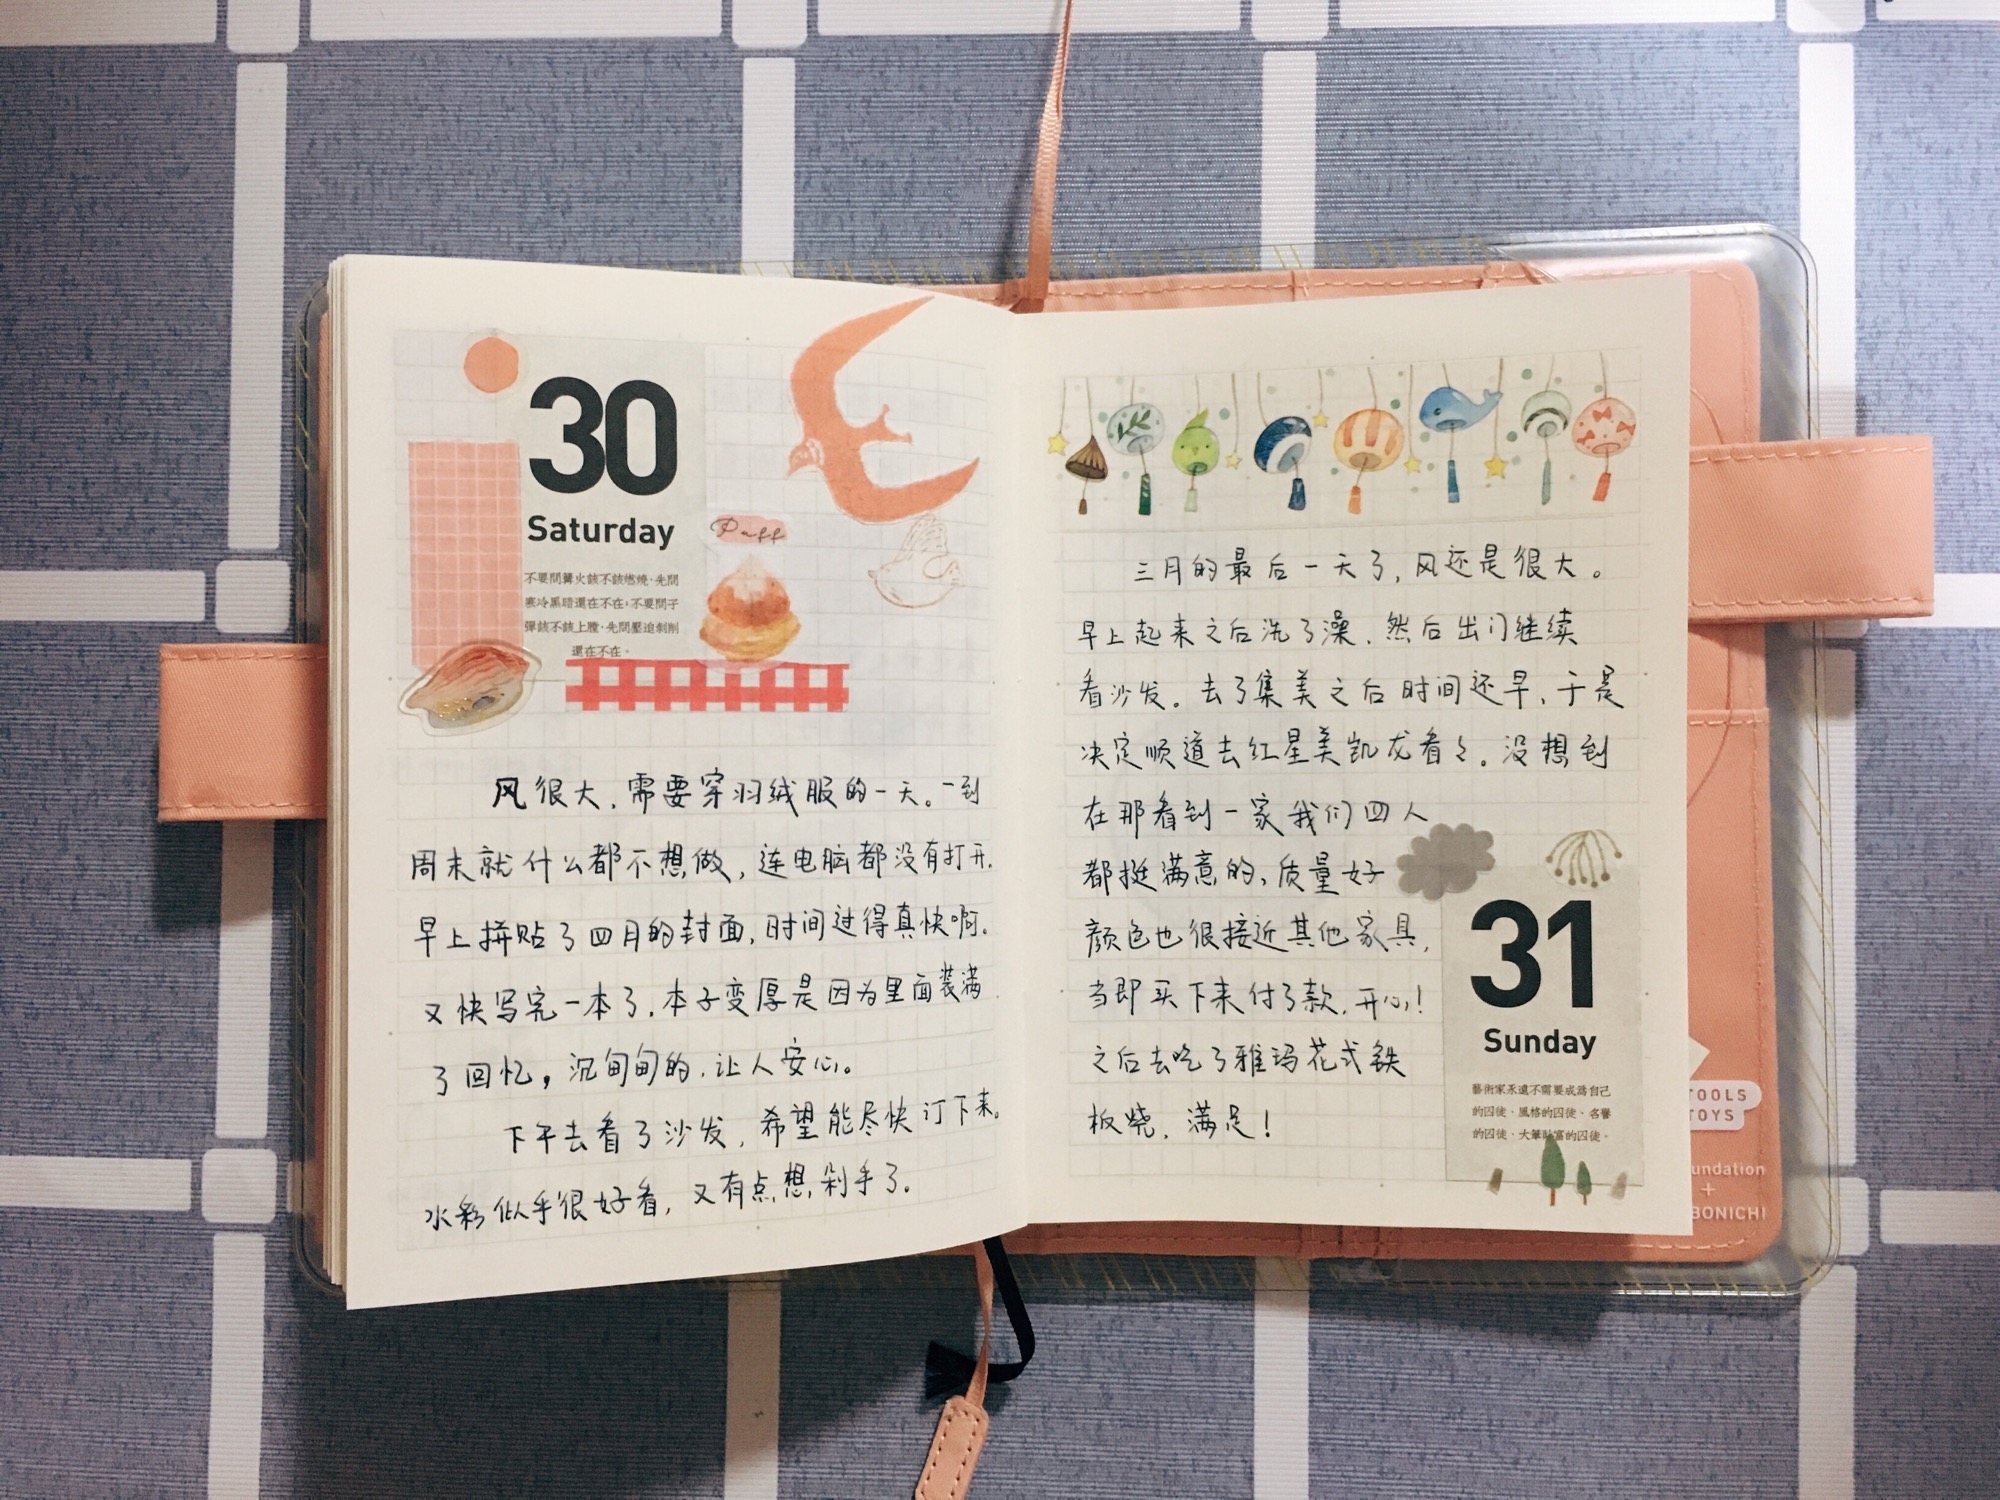 30
Saturday
不要問篝火該不該燃燒，先問
寒冷黑暗還在不在；不要問子
彈該不該上膛，先問壓迫剝削
還在不在。
Puff
风很大，需要穿羽绒服的一天。一到
周末就什么都不想做，连电脑都没有打开。
早上拼贴了四月的封面，时间过得真快啊。
又快写完一本了，本子变厚是因为里面装满
了回忆，沉甸甸的，让人安心。
下午去看了沙发，希望能尽快订下来。
水彩似乎很好看，又有点想剁手了。
三月的最后一天了，风还是很大。
早上起来之后洗了澡，然后出门继续
看沙发。去了集美之后时间还早，于是
决定顺道去红星美凯龙看々。没想到
在那看到一家我们四人
都挺满意的，质量好
颜色也很接近其他家具，
当即买下来付了款，开心！
之后去吃了雅玛花式铁
板烧，满足！
31
Sunday
藝術家永遠不需要成為自己
的囚徒，風格的囚徒，名譽
的囚徒，大筆財富的囚徒。
TOOLS
TOYS
undation
+
BONICHI